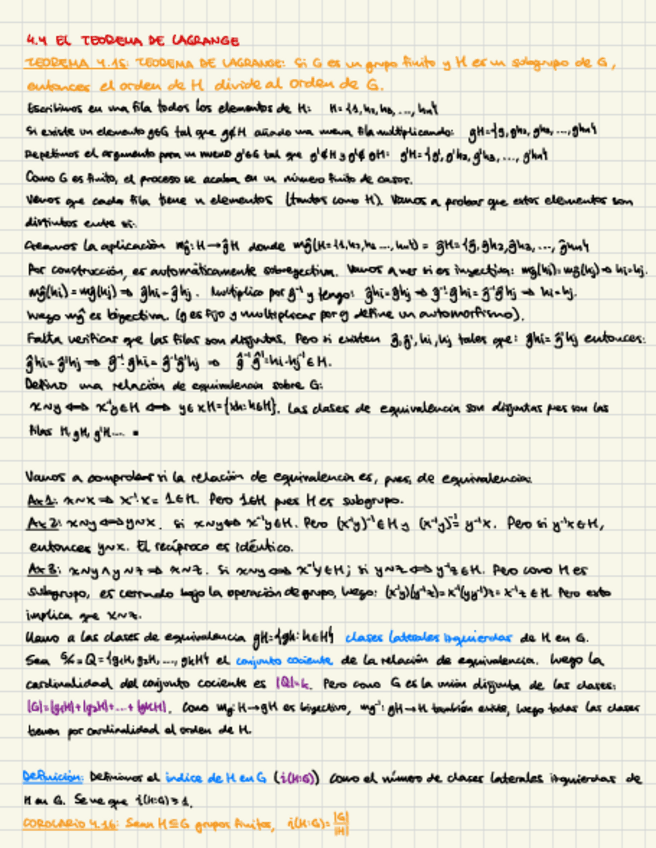 4.4 EL TEOREMA DE LAGRANGE
TEOREMA 4.15: TEOREMA DE LAGRANGE: Si G es un grupo finito y H es un subgrupo de G,
entonces el orden de H divide al orden de G.
Escribimos en una fila todos los elementos de H: H={1, h₂, h₃, ..., hₙ}
Si existe un elemento g∈G tal que g∉H añado una nueva fila multiplicando: gH={g, gh₂, gh₃, ..., ghₙ}
Repetimos el argumento para un nuevo g'∈G tal que g'∉H y g'∉gH: g'H={g', g'h₂, g'h₃, ..., g'hₙ}
Como G es finito, el proceso se acaba en un número finito de casos.
Vemos que cada fila tiene n elementos (tantos como H). Vamos a probar que estos elementos son
distintos entre sí:
Creamos la aplicación mĝ: H→ĝH donde mĝ(H={1, h₂, h₃ ..., hₙ}) = ĝH={ĝ, ĝh₂, ĝh₃, ..., ĝhₙ}
Por construcción, es automáticamente sobreyectiva. Vamos a ver si es inyectiva: mĝ(hi)=mĝ(hj) ⇒ hi=hj.
mĝ(hi) = mĝ(hj) ⇒ ĝhi=ĝhj. Multiplico por ĝ⁻¹ y tengo: ĝhi=ĝhj ⇒ ĝ⁻¹ĝhi=ĝ⁻¹ĝhj ⇒ hi=hj.
Luego mĝ es biyectiva. (g es fijo y multiplicar por g define un automorfismo).
Falta verificar que las filas son disjuntas. Pero si existen ĝ, ĝ', hi, hj tales que: ĝhi=ĝ'hj entonces:
ĝhi=ĝ'hj ⇒ ĝ⁻¹ĝhi=ĝ⁻¹ĝ'hj ⇒ ĝ⁻¹ĝ'=hi·hj⁻¹∈H.
Defino una relación de equivalencia sobre G:
x~y ⇔ x⁻¹y∈H ⇔ y∈xH={xh: h∈H}. Las clases de equivalencia son disjuntas pues son las
filas H, gH, g'H.... ▪
Vamos a comprobar si la relación de equivalencia es, pues, de equivalencia:
Ax 1: x~x ⇒ x⁻¹·x= 1∈H. Pero 1∈H pues H es subgrupo.
Ax 2: x~y ⇔ y~x. Si x~y ⇔ x⁻¹y∈H. Pero (x⁻¹y)⁻¹∈H y (x⁻¹y)⁻¹=y⁻¹x. Pero si y⁻¹x∈H,
entonces y~x. El recíproco es idéntico.
Ax 3: x~y ∧ y~z ⇒ x~z. Si x~y ⇔ x⁻¹y∈H; si y~z ⇔ y⁻¹z∈H. Pero como H es
subgrupo, es cerrado bajo la operación de grupo, luego: (x⁻¹y)(y⁻¹z)=x⁻¹(yy⁻¹)z=x⁻¹z∈H. Pero esto
implica que x~z.
Llamo a las clases de equivalencia gH={gh: h∈H} clases laterales izquierdas de H en G.
Sea G/H=Q={g₁H, g₂H, ..., gₖH} el conjunto cociente de la relación de equivalencia. Luego la
cardinalidad del conjunto cociente es |Q|=k. Pero como G es la unión disjunta de las clases:
|G|=|g₁H|+|g₂H|+...+|gₖH|. Como mg: H→gH es biyectivo, mg⁻¹: gH→H también existe, luego todas las clases
tienen por cardinalidad el orden de H.
Definición: Definimos el índice de H en G (i(H:G)) como el número de clases laterales izquierdas de
H en G. Se ve que i(H:G)≥1.
COROLARIO 4.16: Sean H⊆G grupos finitos, i(H:G)=|G|/|H|